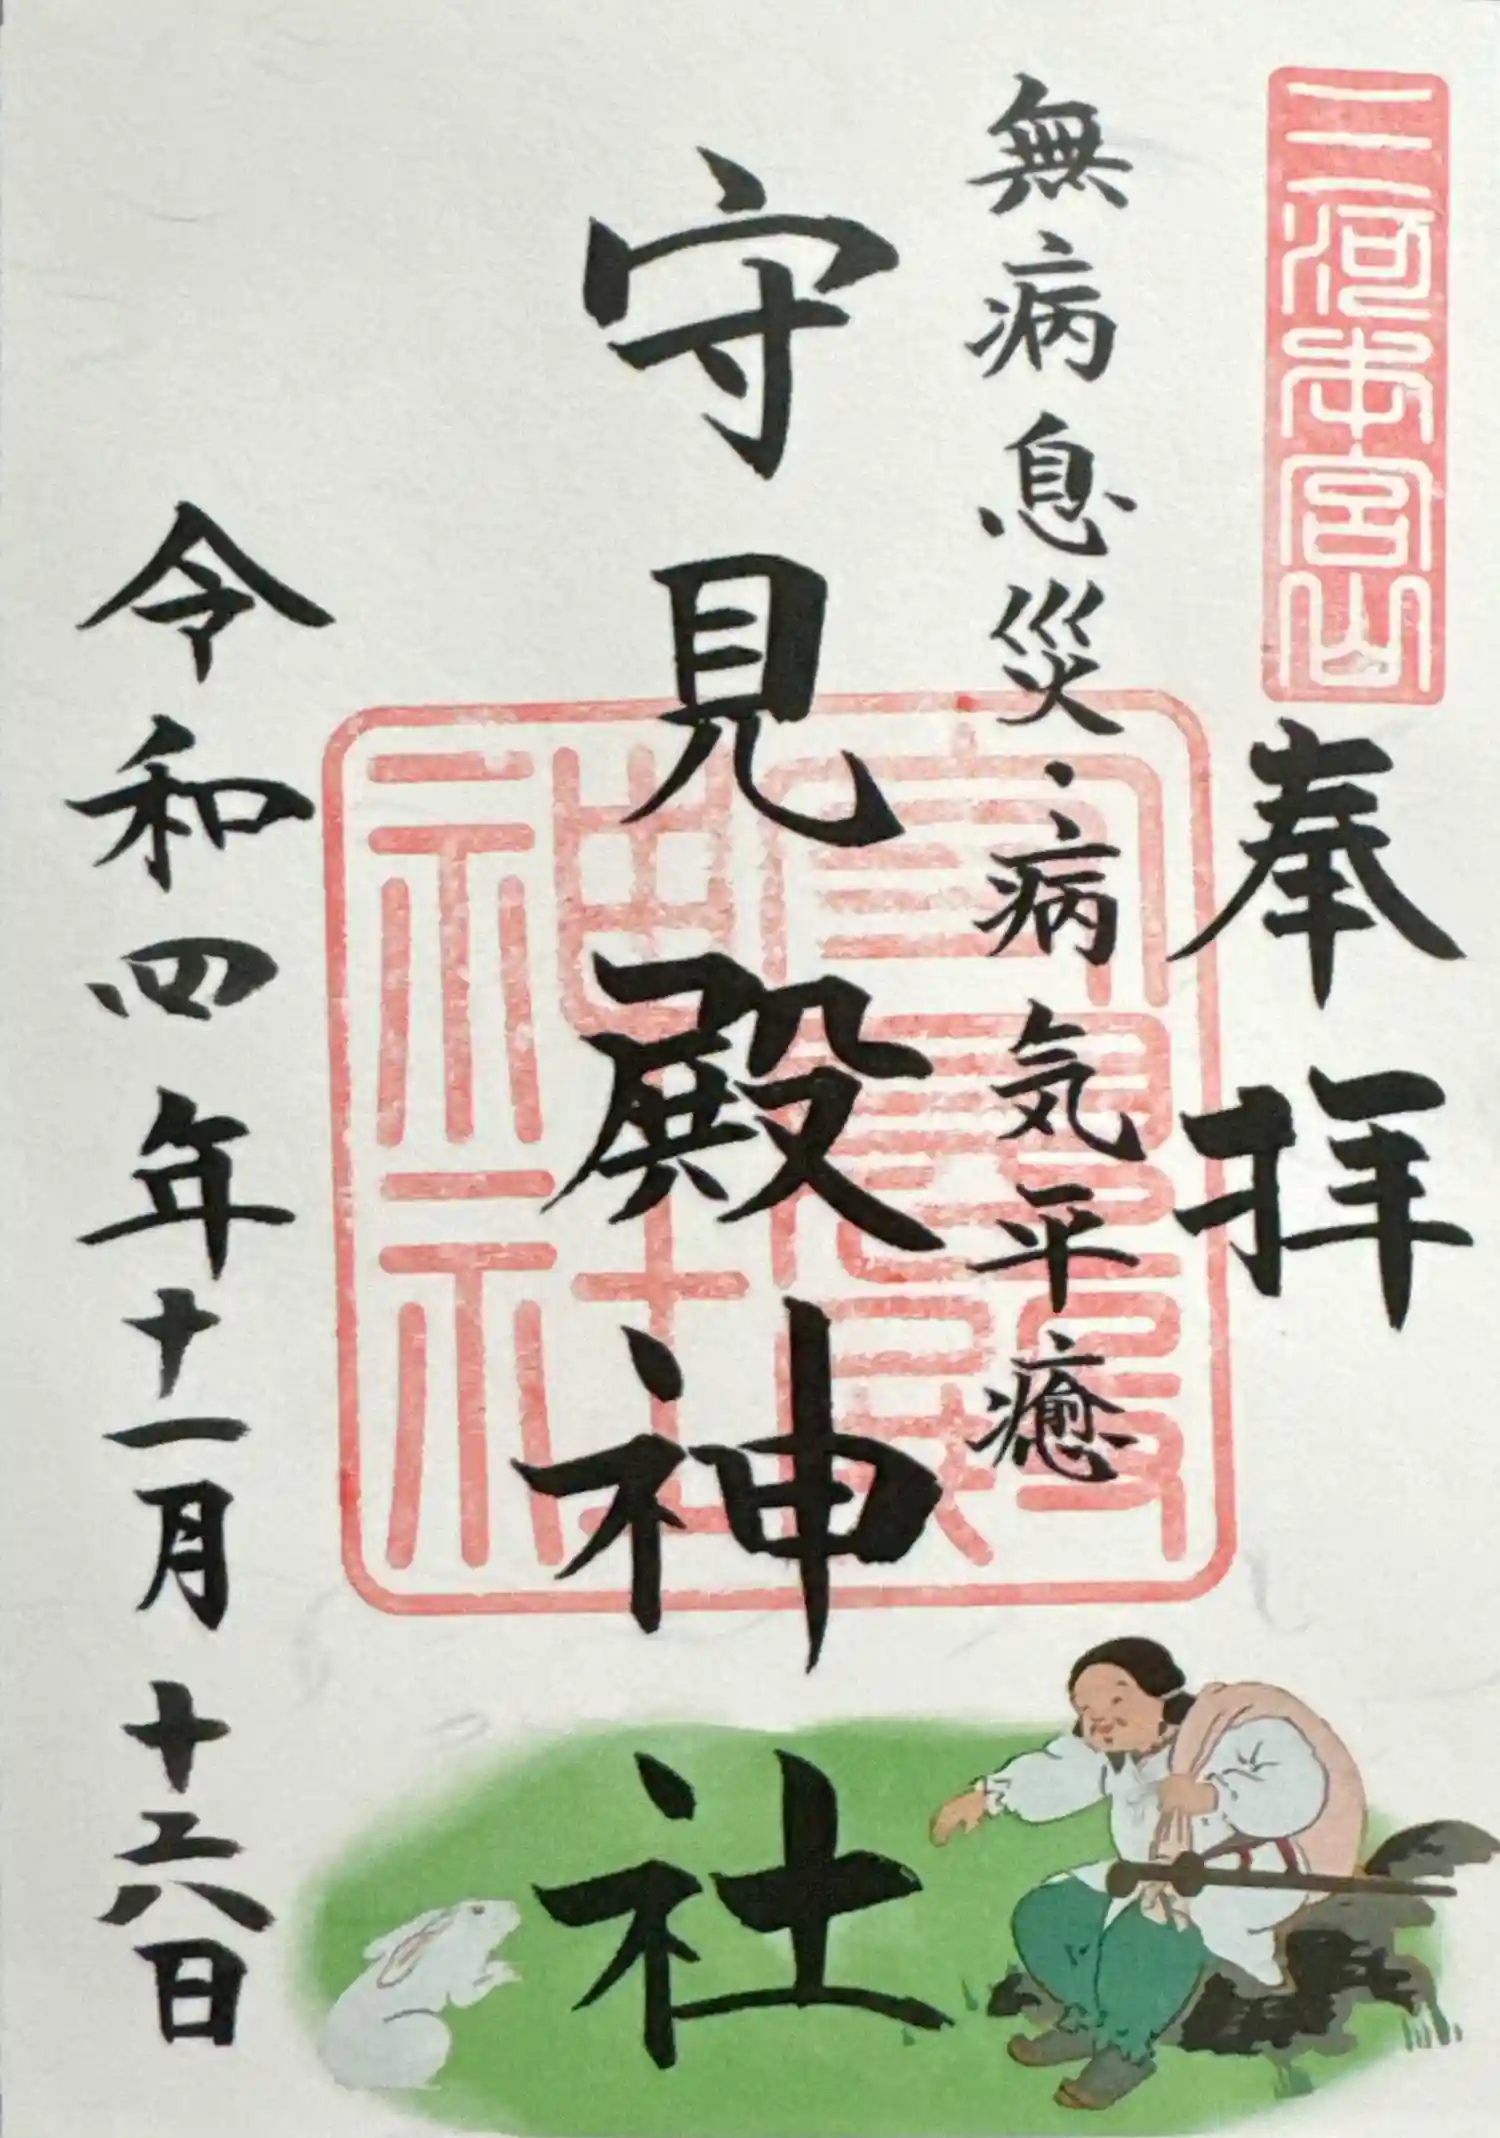 三河本宮山
奉拝
無病息災・病気平癒
守見殿神社
守見殿神社
令和四年十一月十六日